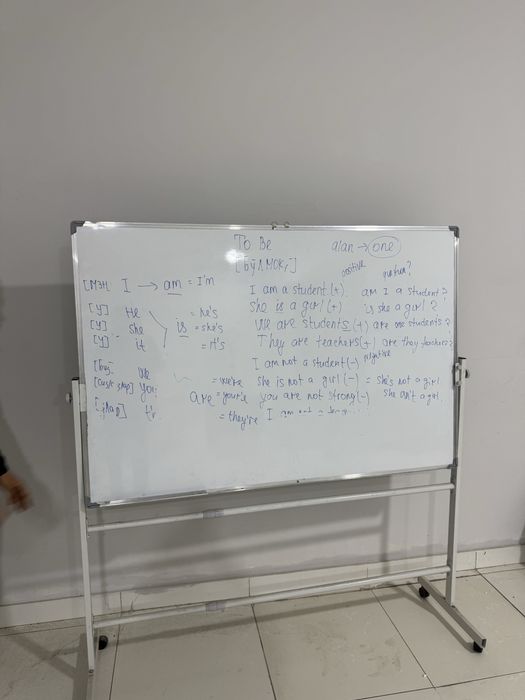 To Be
a/an → one
[БЎЛМОҚ]
positive
[МЭН I → am = I'm
I am a student (+)
am I a student?
[У] He = he's
she is a girl (+)
is she a girl?
[У] she is = she's
we are students (+)
[У] it = it's
They are teachers (+) are they teachers?
I am not a student (-) negative
we = we're
she is not a girl (-) = she's not a girl
you are = you're
you are not strong (-)
= they're I am not a